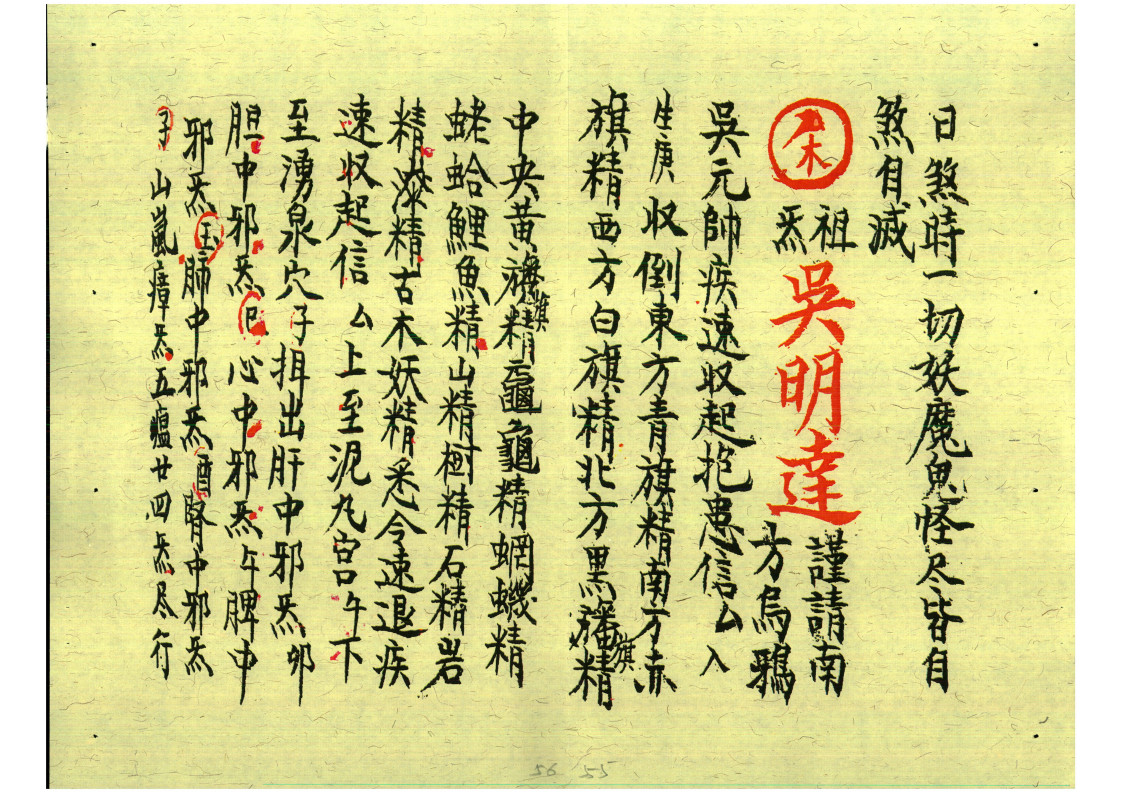 日煞時一切妖魔鬼怪尽皆自
煞自滅
祖
炁
吳明達
謹請南
方烏鴉
吳元帥疾速収起抱患信厶入
生庚収倒東方青旗精南方赤
旗精西方白旗精北方黑旛旗精
中央黄旛旗精黿龜精蝄蟣精
蛯蛤鯉魚精山精樹精石精岩
精精古木妖精悉令速退疾
速収起信厶上至泥丸宫午下
至湧泉穴子揖出肝中邪炁卯
胆中邪炁心中邪炁午脾中
邪炁肺中邪炁酉腎中邪炁
子山嵐瘴炁五瘟廿四炁尽行
56 55